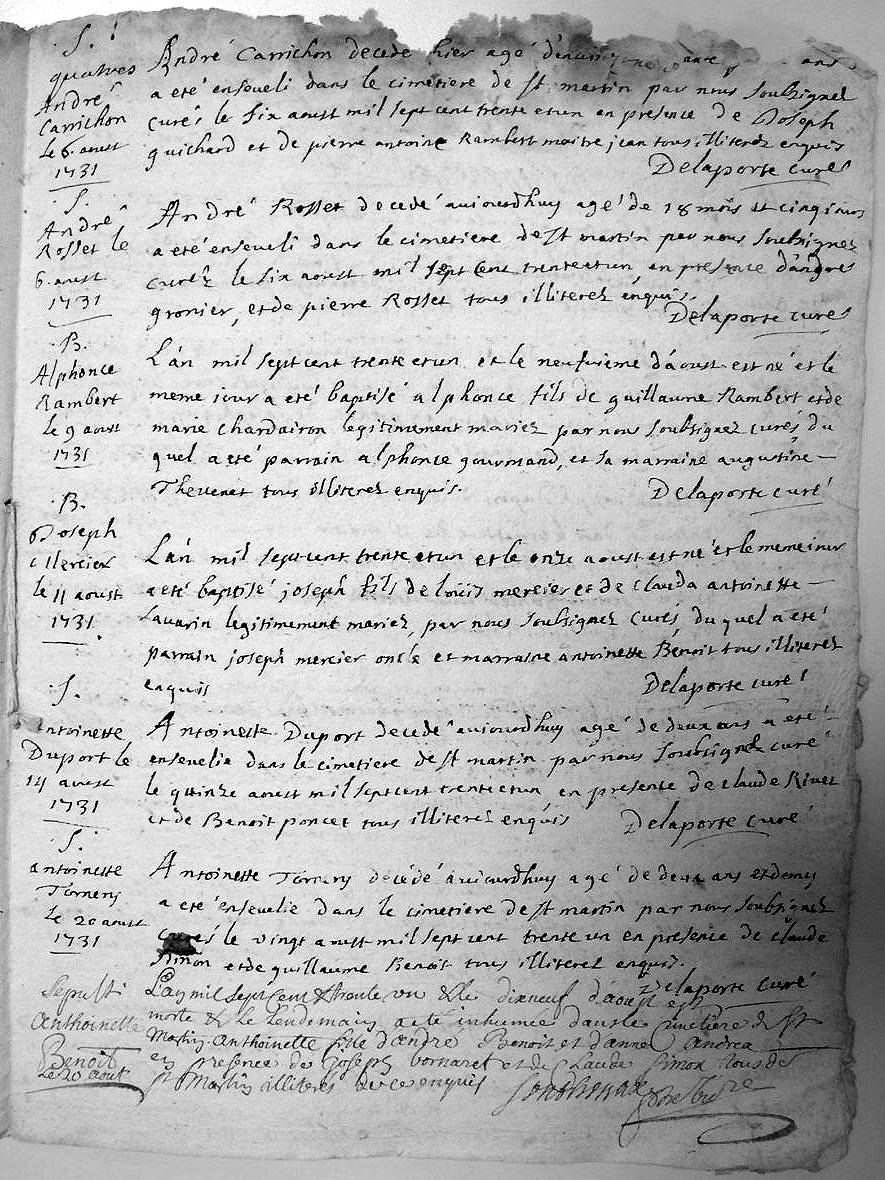 S.
quatves
André
Carrichon
le 6. aoust
1731
André Carrichon decede hier agé ans
a eté enseveli dans le cimetiere de st martin par nous soubsignez
curés le six aoust mil sept cent trente et un en presence de Joseph
guichard et de pierre antoine Rambert maitre jean tous illiterez enquis
Delaporte curé
S.
André
Rosset le
6. aoust
1731
André Rosset decedé aujourdhuy agé de 18 mois et cinq jours
a eté enseveli dans le cimetiere de st martin par nous soubsignez
curéz le six aoust mil sept cent trente et un, en presence
gronier, et de pierre Rosset tous illiterez enquis.
Delaporte curé
B.
Alphonce
Rambert
le 9 aoust
1731
L'an mil sept cent trente et un et le neufvieme d'aoust est né et le
meme jour a eté baptisé alphonce fils de guillaume Rambert et de
marie chardairon legitimement mariez par nous soubsignez curés du
quel a eté parrain alphonce gourmand, et sa marraine augustine
Thevenet tous illiterez enquis.
Delaporte curé
B.
Joseph
Mercier
le 11 aoust
1731
L'an mil sept cent trente et un et le onze aoust est né et le meme jour
a eté baptisé joseph fils de loüis mercier et de clauda antoinette
Lavarin legitimement mariez, par nous soubsignez curés, du quel a eté
parrain joseph mercier oncle et marraine antoinette Benoit tous illiterez
enquis
Delaporte curé
S.
antoinette
Duport le
14 aoust
1731
Antoinette Duport decedé aujourdhuy agé de deux ans a eté
ensevelie dans le cimetiere de st martin par nous soubsignez curé
le quinze aoust mil sept cent trente et un en presente de claude Rivet
et de Benoit poncet tous illiterez enquis
Delaporte curé
S.
antoinette
Tornery
le 20 aoust
1731
Antoinette Tornery décédé aujourdhuy agé de deux ans et demy
a eté ensevelie dans le cimetiere de st martin par nous soubsignez
curés le vingt aoust mil sept cent trente un en presence de claude
Simon et de guillaume Benoit tous illiterez enquis.
Delaporte curé
Sepult
Anthoinette
Benoit
Le 20 aout
L'an mil sept cent & trente un & le dixneuf d'aoust est
morte & le lendemain a eté inhumée dans le cimetiere de st
Martin Anthoinette fille d'andré Benoit et d'anne Andrea
en presence de Joseph bornaret et de Claude Simon tous de
st Martin illiteres de ce enquis